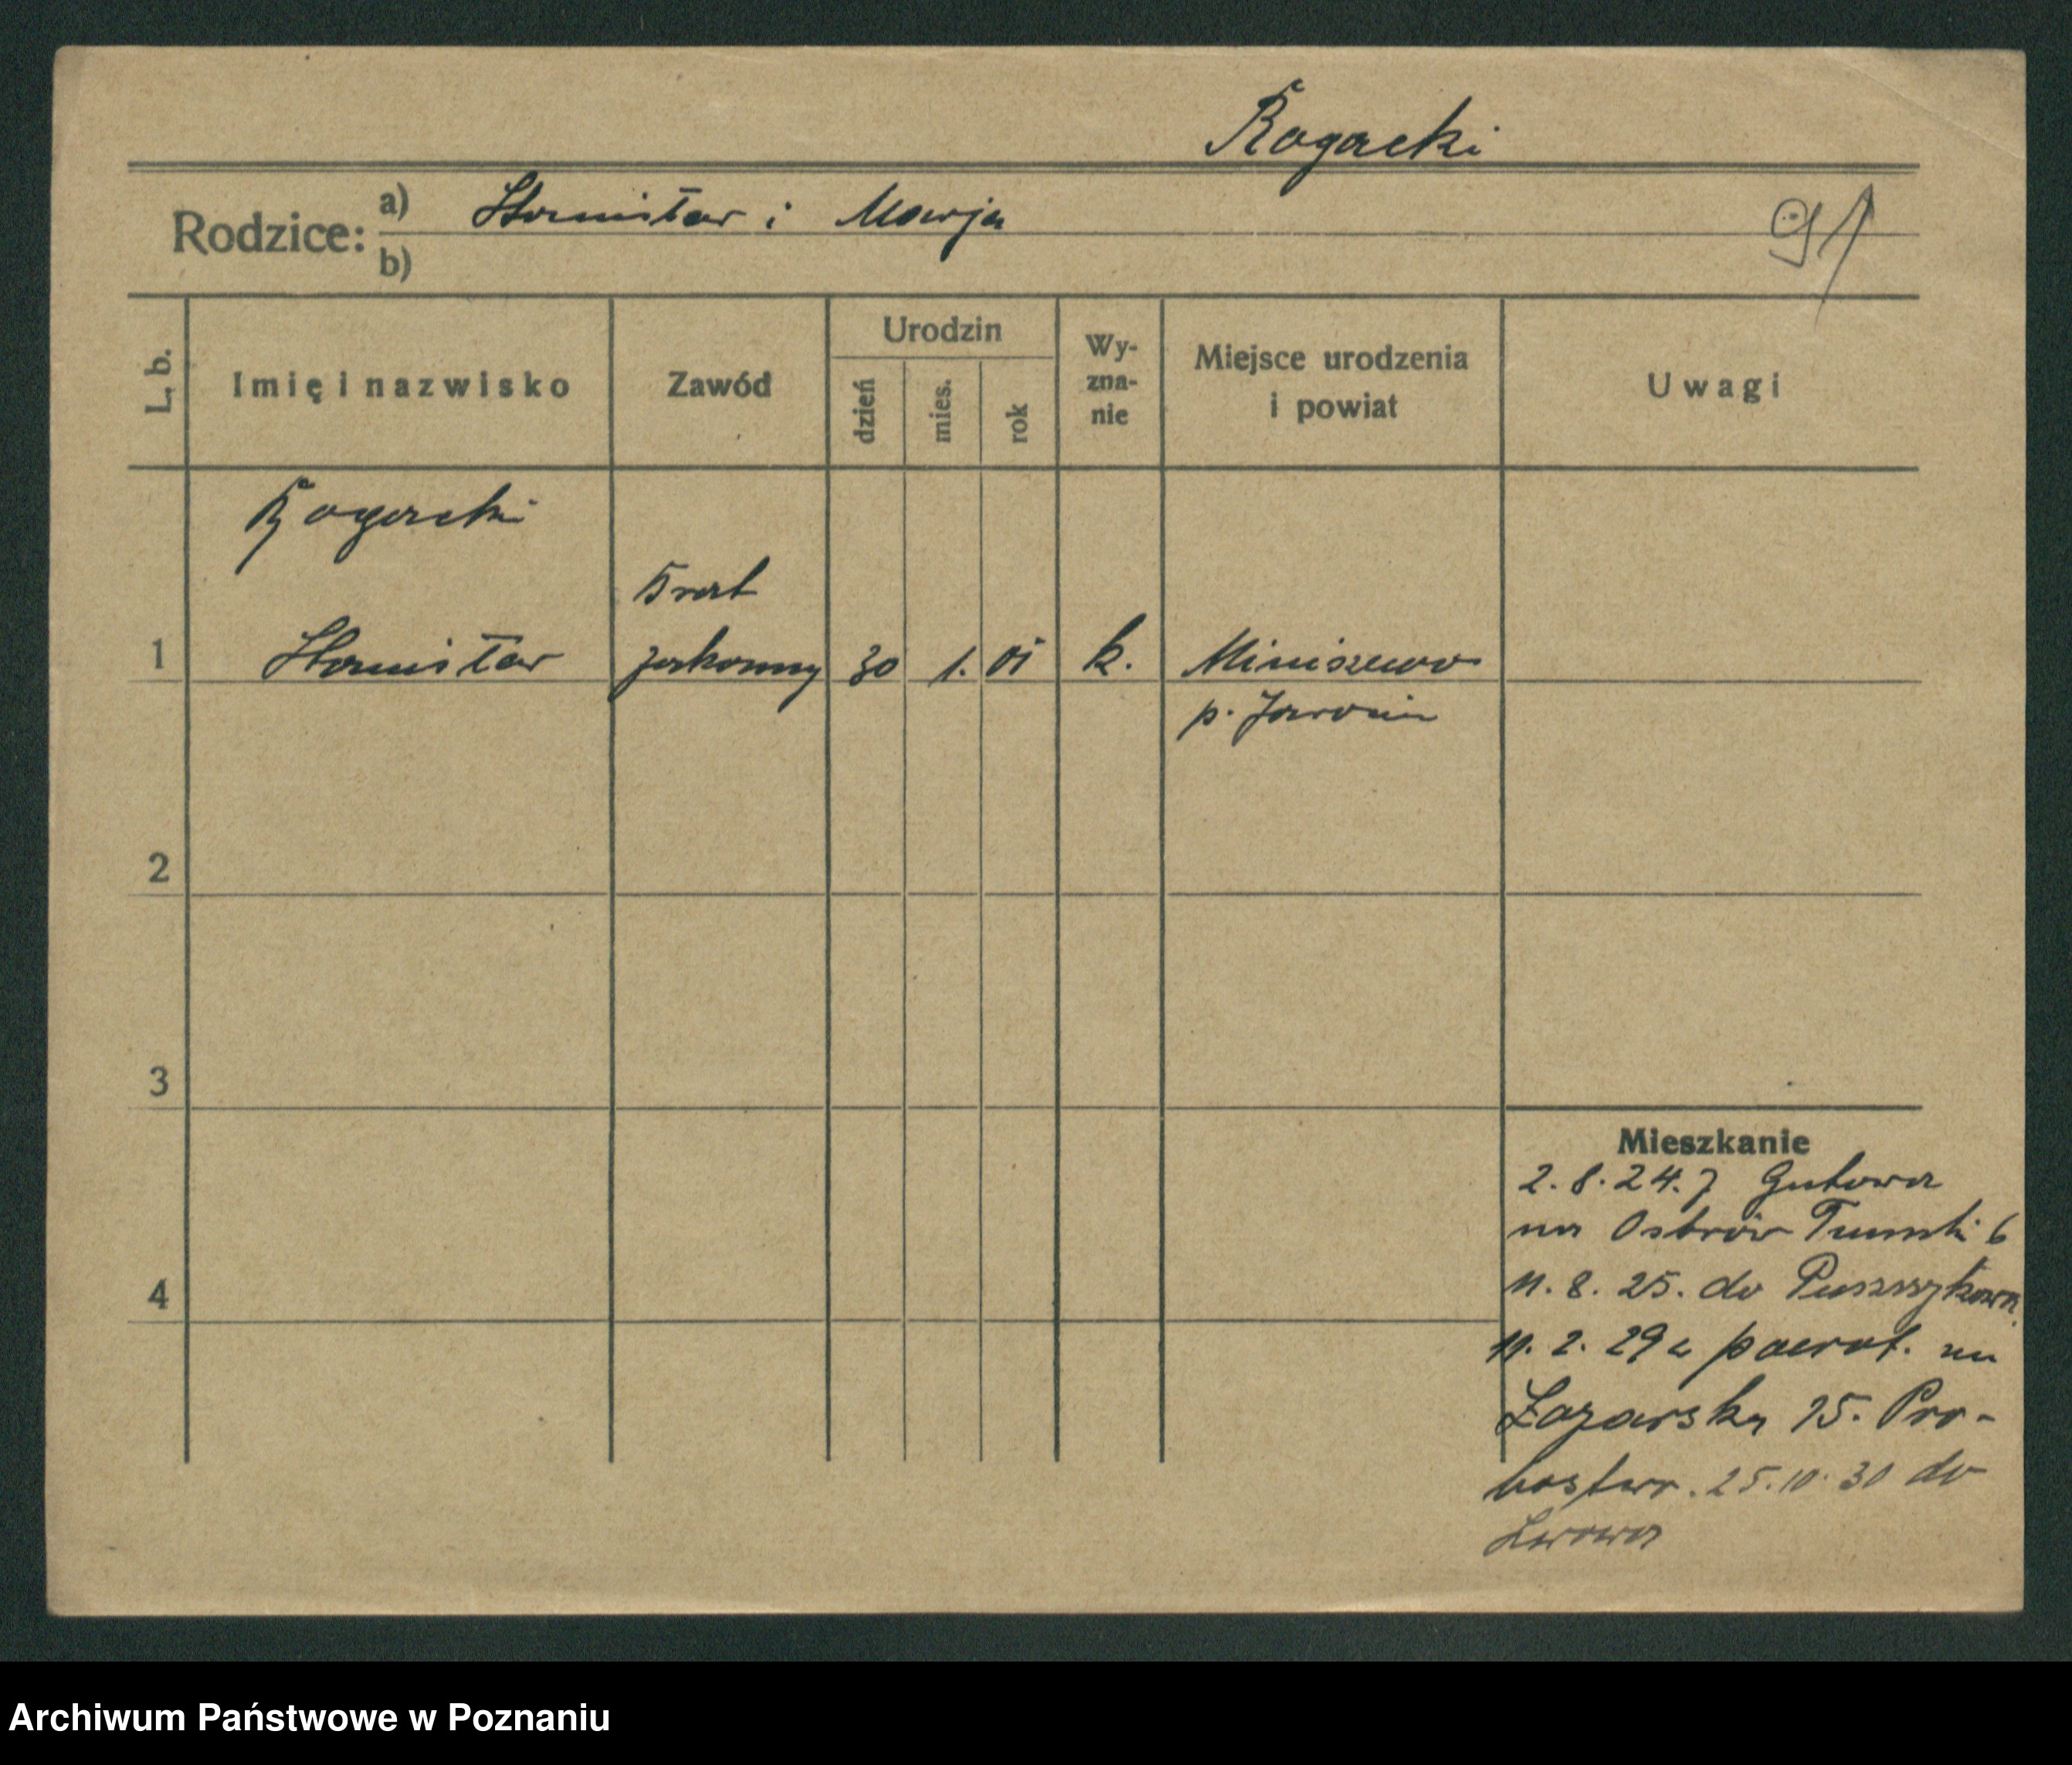 Rogacki
Rodzice: a) Stanisław i Marja
b)
91
L. b.
Imię i nazwisko
Zawód
Urodzin
dzień
mies.
rok
Wy-
zna-
nie
Miejsce urodzenia
i powiat
Uwagi
Rogacki
Brat
1 Stanisław zakonny 30 1. 01 k. Miniszewo
p. Jarocin
2
3
4
Mieszkanie
2.8.24. z Gutowa
na Ostrów Tumski 6
11.8.25. do Puszczykowa
11.2.29 z powrot. na
Łazarska 15. Pro-
bostwo. 25.10.30 do
Lwowa
Archiwum Państwowe w Poznaniu